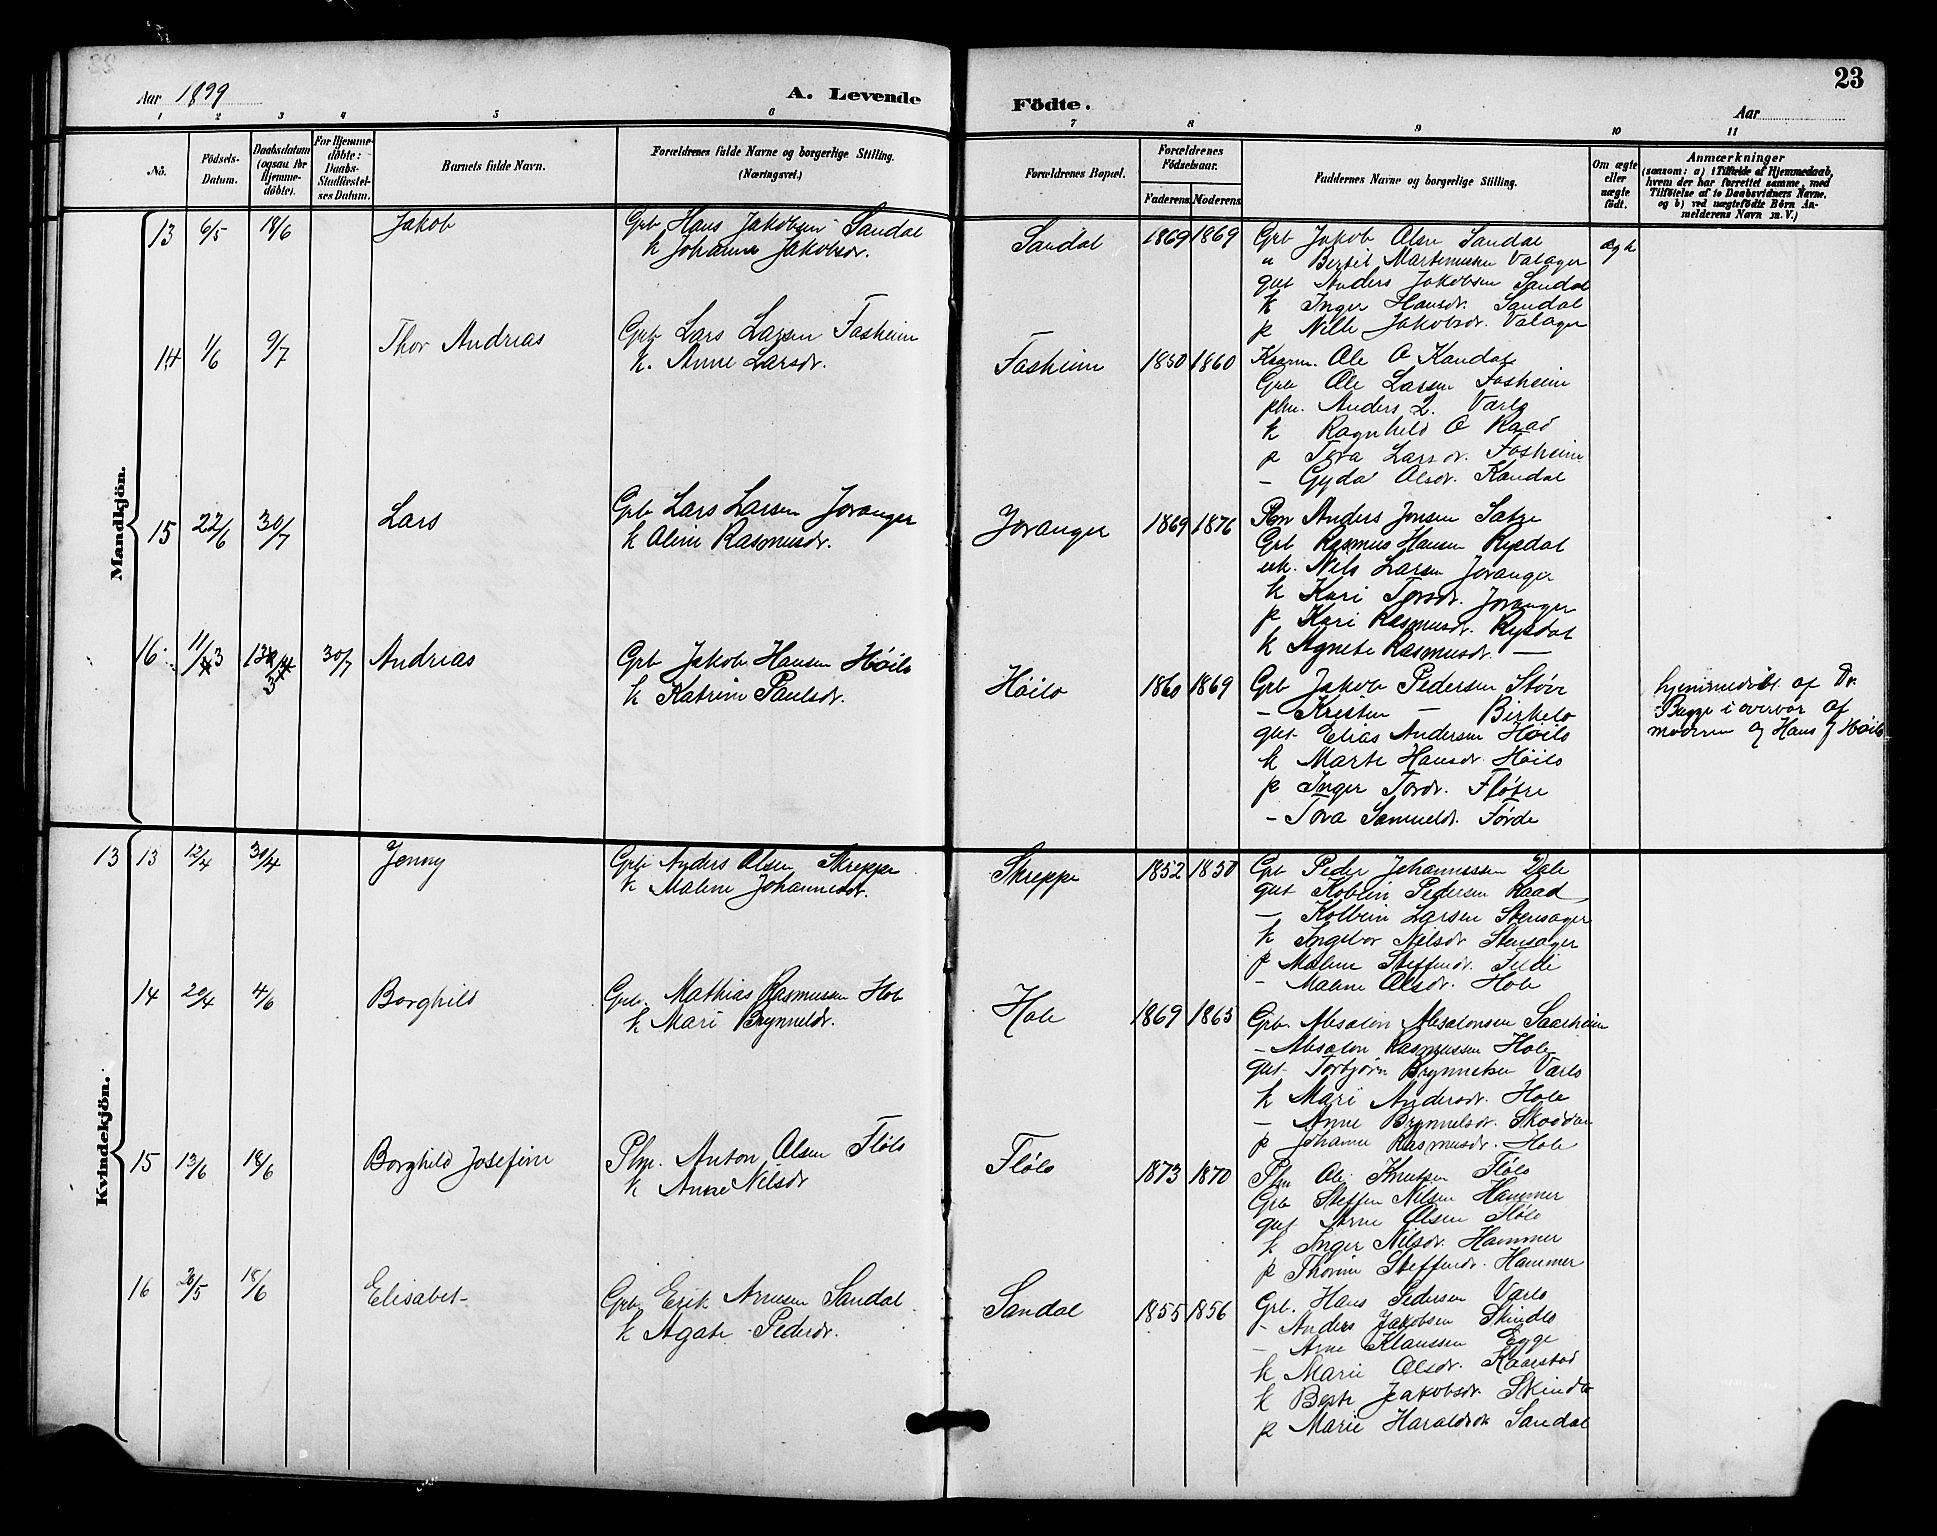 23
Aar 1899
A. Levende
Födte.
Aar
1 2 3 4 5 6 7 8 9 10 11
No.
Födsels-Datum.
Daabsdatum (ogsaa for Hjemme-döbte).
For Hjemme-döbte: Daabs-Stadfæstel-ses Datum.
Barnets fulde Navn.
Forældrenes fulde Navne og borgerlige Stilling. (Næringsvei.)
Forældrenes Bopæl.
Forældrenes Födselsaar.
Faderens. Moderens.
Faddernes Navne og borgerlige Stilling.
Om ægte eller uægte födt.
Anmærkninger (saasom: a) i Tilfælde af Hjemmedaab, hvem der har forrettet samme, med Tilföielse af to Daabsvidners Navne, og b) ved uægtefödte Börn An-melderens Navn m. V.)
Mandkjön.
13 6/5 18/6 Jakob
Grb Hans Jakobsen Sandal
k Johanne Jakobsdr.
Sandal 1869 1869
Grb Jakob Olsen Sandal
" Bertil Martinusen Valager
gut Anders Jakobsen Sandal
k Inger Hansdr. Sandal
p Nille Jakobsdr. Valager
ægte
14 1/6 9/7 Thor Andreas
Grb Lars Larsen Fosheim
k. Anne Larsdr.
Fosheim 1850 1860
Kaarm. Ole O Kandal
Grb Ole Larsen Fosheim
plm. Anders L. Varlo
k Ragnhild O Raad
p Tora Larsdr. Fosheim
- Gyda Olsdr. Kandal
15 22/6 30/7 Lars
Grb Lars Larsen Joranger
k Aline Rasmusdr.
Joranger 1869 1876
Anders Jonsen Satre
Grb Rasmus Hansen Rysdal
Nils Larsen Joranger
k Kari Torsdr. Joranger
p Kari Rasmusdr. Rysdal
k Agnete Rasmusdr. —
16 11/3 30/7 Andreas
Grb Jakob Hansen Höilo
k Katrine Paulsdr.
Höilo 1860 1869
Grb Jakob Pedersen Störe
- Kristen — Birkelo
gut Elias Andersen Höilo
k Marte Hansdr. Höilo
p Inger Tordr. Flötre
- Tora Samueldr. Förde
hjemmedöbt af Dr.
Bugge i overvær af
moderen og Hans J Höilo
Kvindekjön.
13 13 12/4 30/4 Jenny
Grb Anders Olsen Skreppe
k Maline Johannesdr.
Skreppe 1852 1850
Grb Peder Johannessen Dale
gut Kolbein Pedersen Raad
- Kolbein Larsen Stensager
k Ingebor Nilsdr Stensager
p Maline Steffensdr. Felde
- Maline Olsdr. Hole
14 20/4 4/6 Borghild
Grb. Mathias Rasmussen Hole
k Mari Brynnelsdr.
Hole 1869 1865
Grb. Absalon Absalonsen Saarheim
- Absalon Rasmussen Hole
gut Torbjörn Brynnelsen Varlo
k Mari Andersdr. Hole
- Anne Brynnelsdr. Skoddar
p Johanne Rasmusdr. Hole
15 13/6 18/6 Borghild Josefine
Plm. Anton Olsen Flölo
k Anne Nilsdr
Flölo 1873 1870
Plm Ole Knutsen Flölo
Grb Steffen Nilsen Hammer
gut Arne Olsen Flölo
k Inger Nilsdr. Hammer
p Thorine Steffensdr. Hammer
16 28/5 18/6 Elisabet
Grb Erik Arnesen Sandal
k Agate Pedersdr.
Sandal 1855 1856
Grb. Hans Pedersen Varlo
- Anders Jakobsen Skindlo
- Arne Klaussen Egge
k Marie Olsdr. Kaarstad
k Berte Jakobsdr. Skindlo
p Marie Haraldsdr Sandal